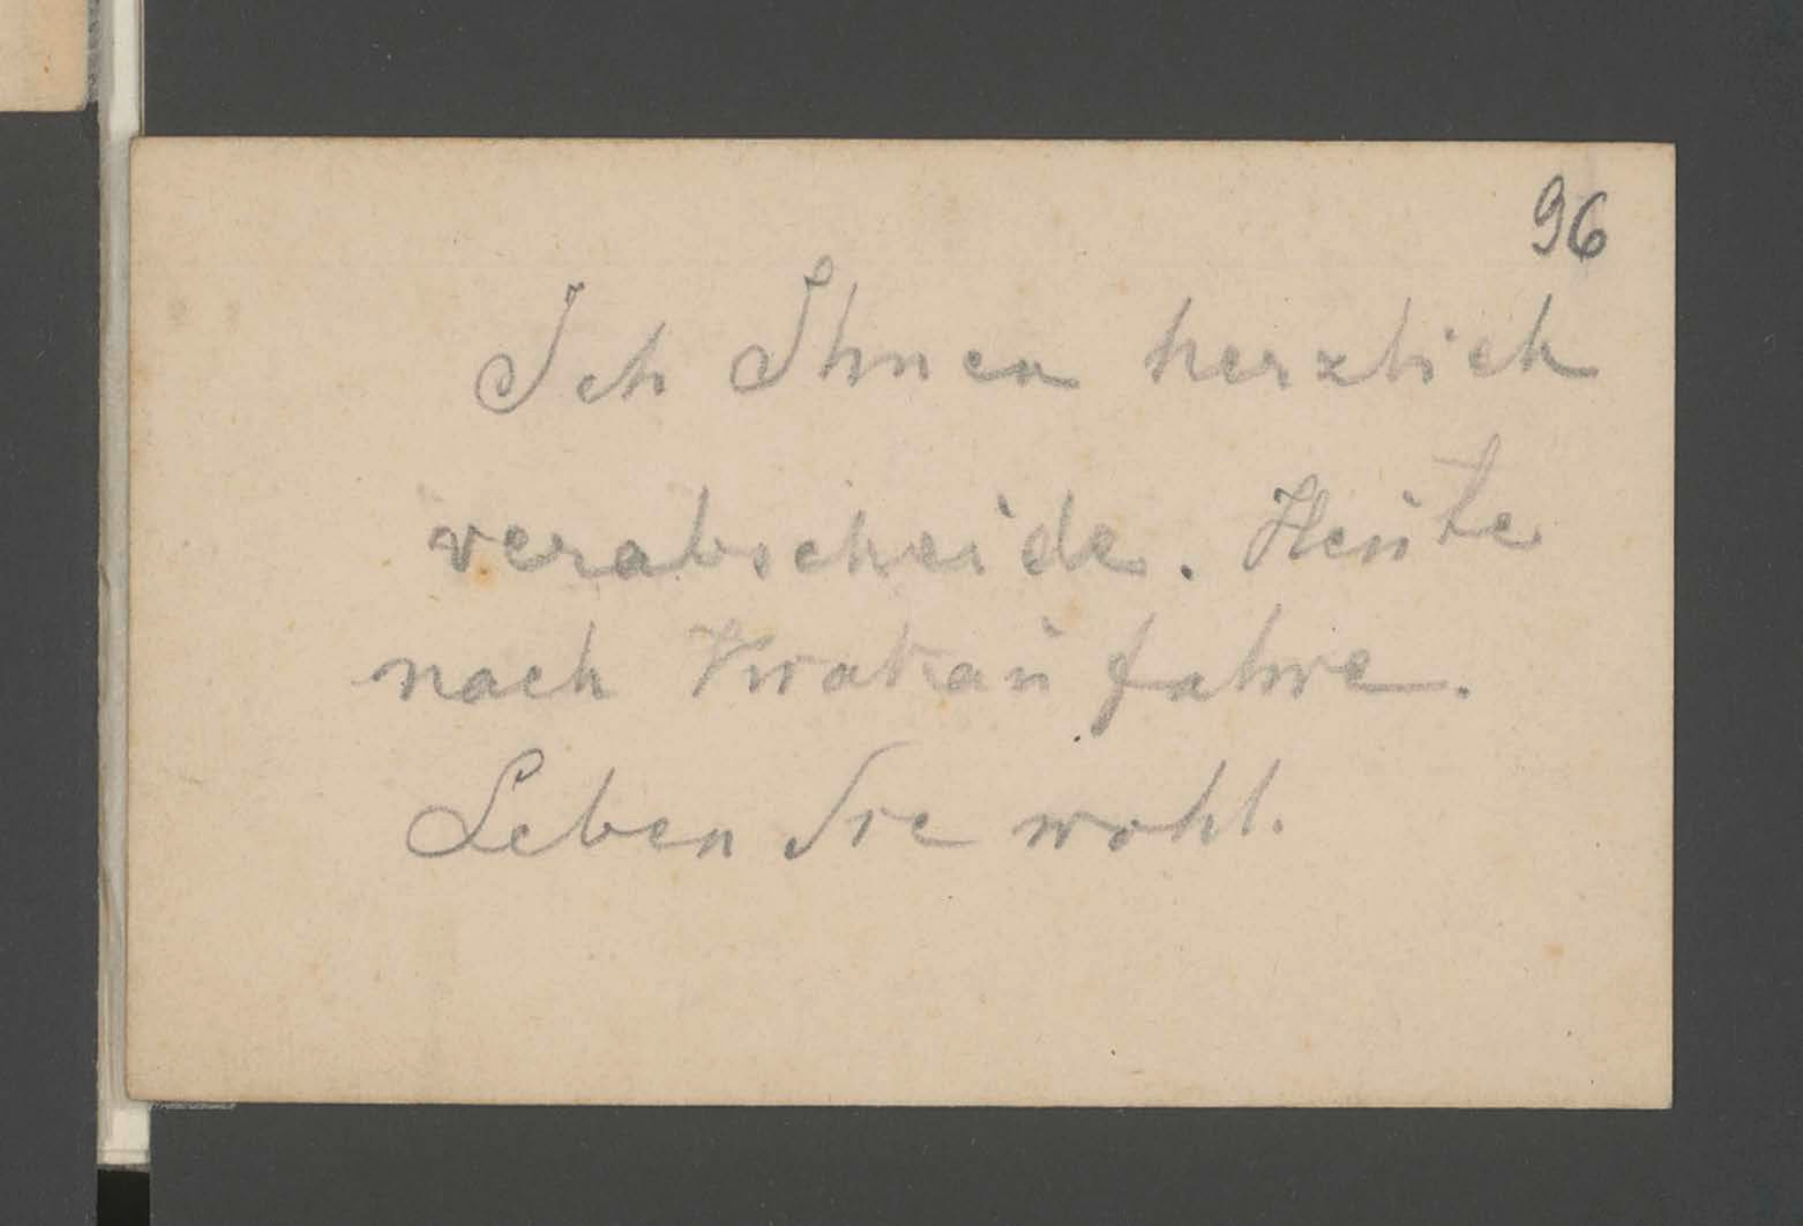 96
Ich Ihnen herzlich
verabscheide. Heute
nach Krakau fahre.
Leben Sie wohl.